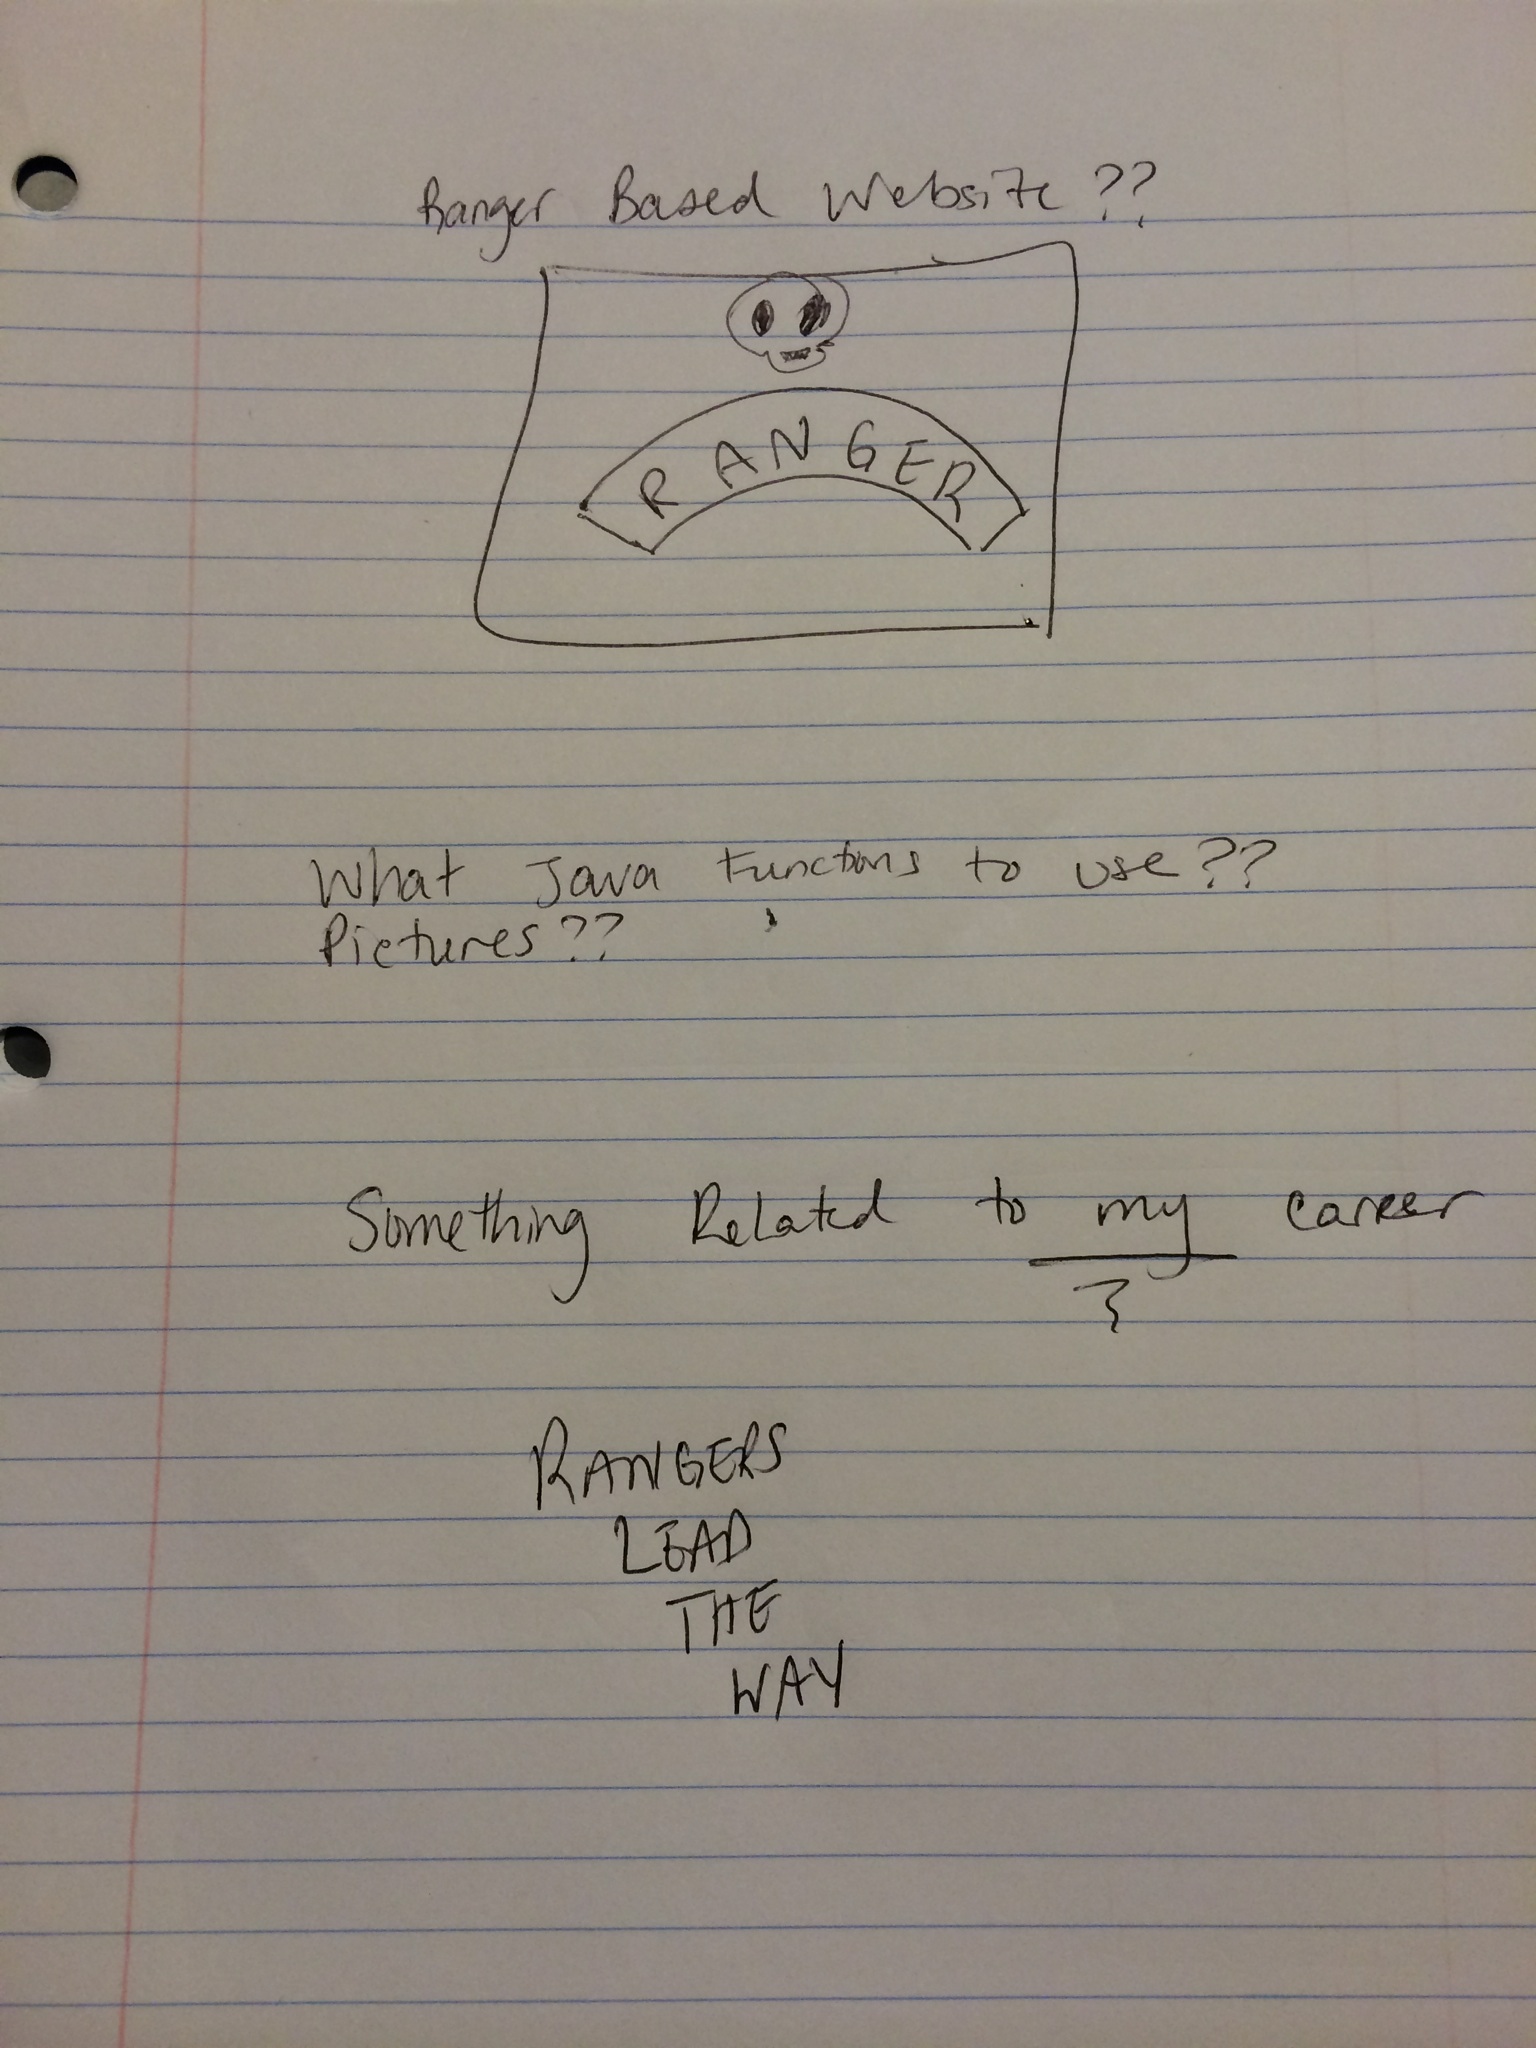 Ranger Based Website??
RANGER
What Java Functions to use??
Pictures??
Something Related to my career
?
RANGERS
LEAD
THE
WAY